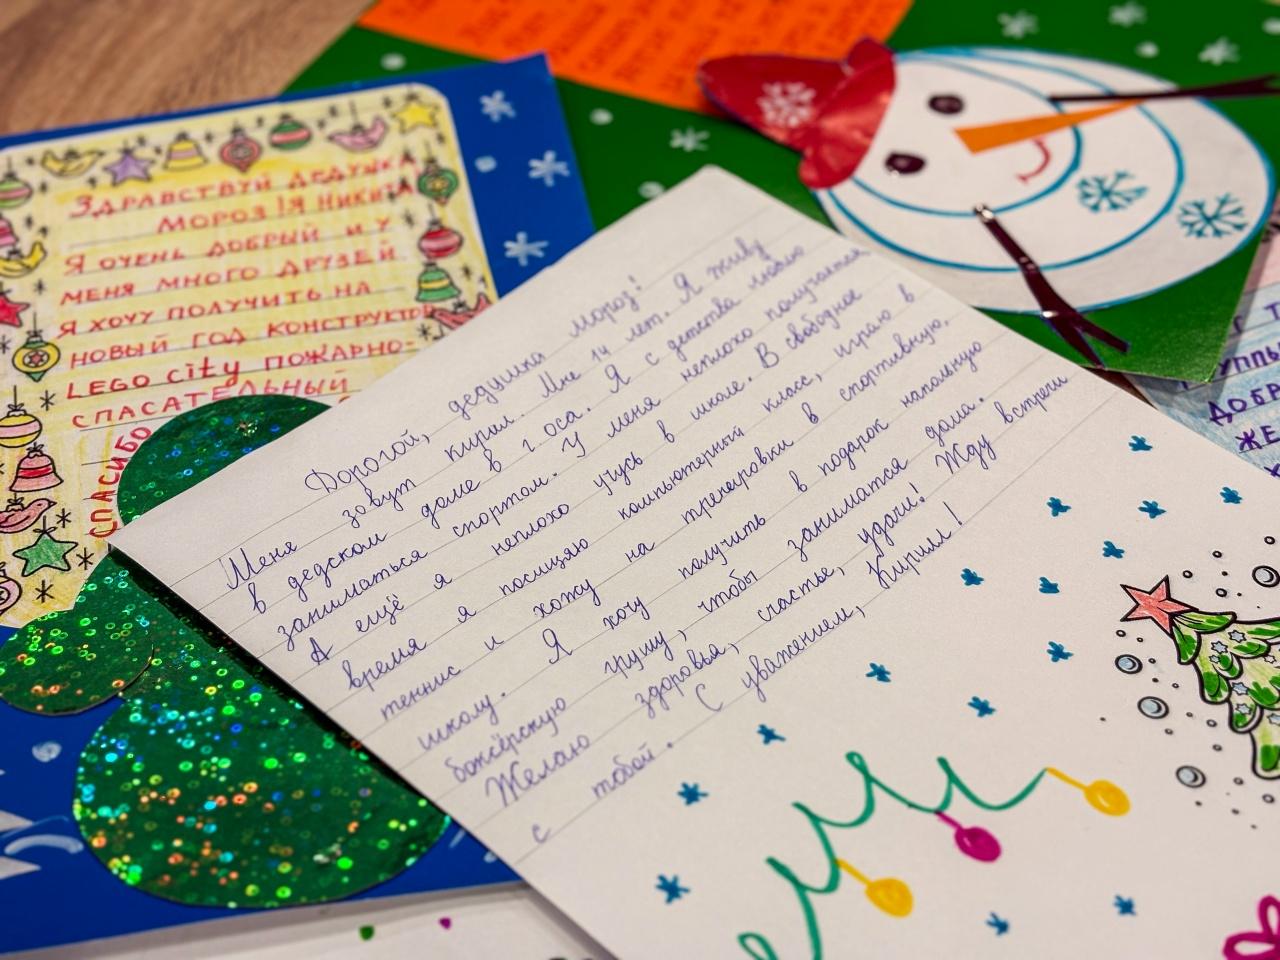 ЗДРАВСТВУЙ ДЕДУШКА
МОРОЗ! Я НИКИТА
Я ОЧЕНЬ ДОБРЫЙ И У
МЕНЯ МНОГО ДРУЗЕЙ.
Я ХОЧУ ПОЛУЧИТЬ НА
НОВЫЙ ГОД КОНСТРУКТО
LEGO city ПОЖАРНО-
СПАСАТЕЛЬНЫЙ
СПАСИБО
Дорогой, дедушка мороз!
Меня зовут кирилл. Мне 14 лет. Я живу
в дедском доме в г оса. Я с детства люблю
заниматься спортом. У меня неплохо получается.
А ещё я неплохо учусь в школе. В свободное
время я посищяю компьютерный класс, играю в
теннис и хожу на тренировки в спортивную
школу. Я хочу получить в подарок напольную
боксёрскую грушу, чтобы заниматся дома.
Желаю здоровья, счастье, удачи! Жду встречи
с тобой. С уважением, Кирилл!